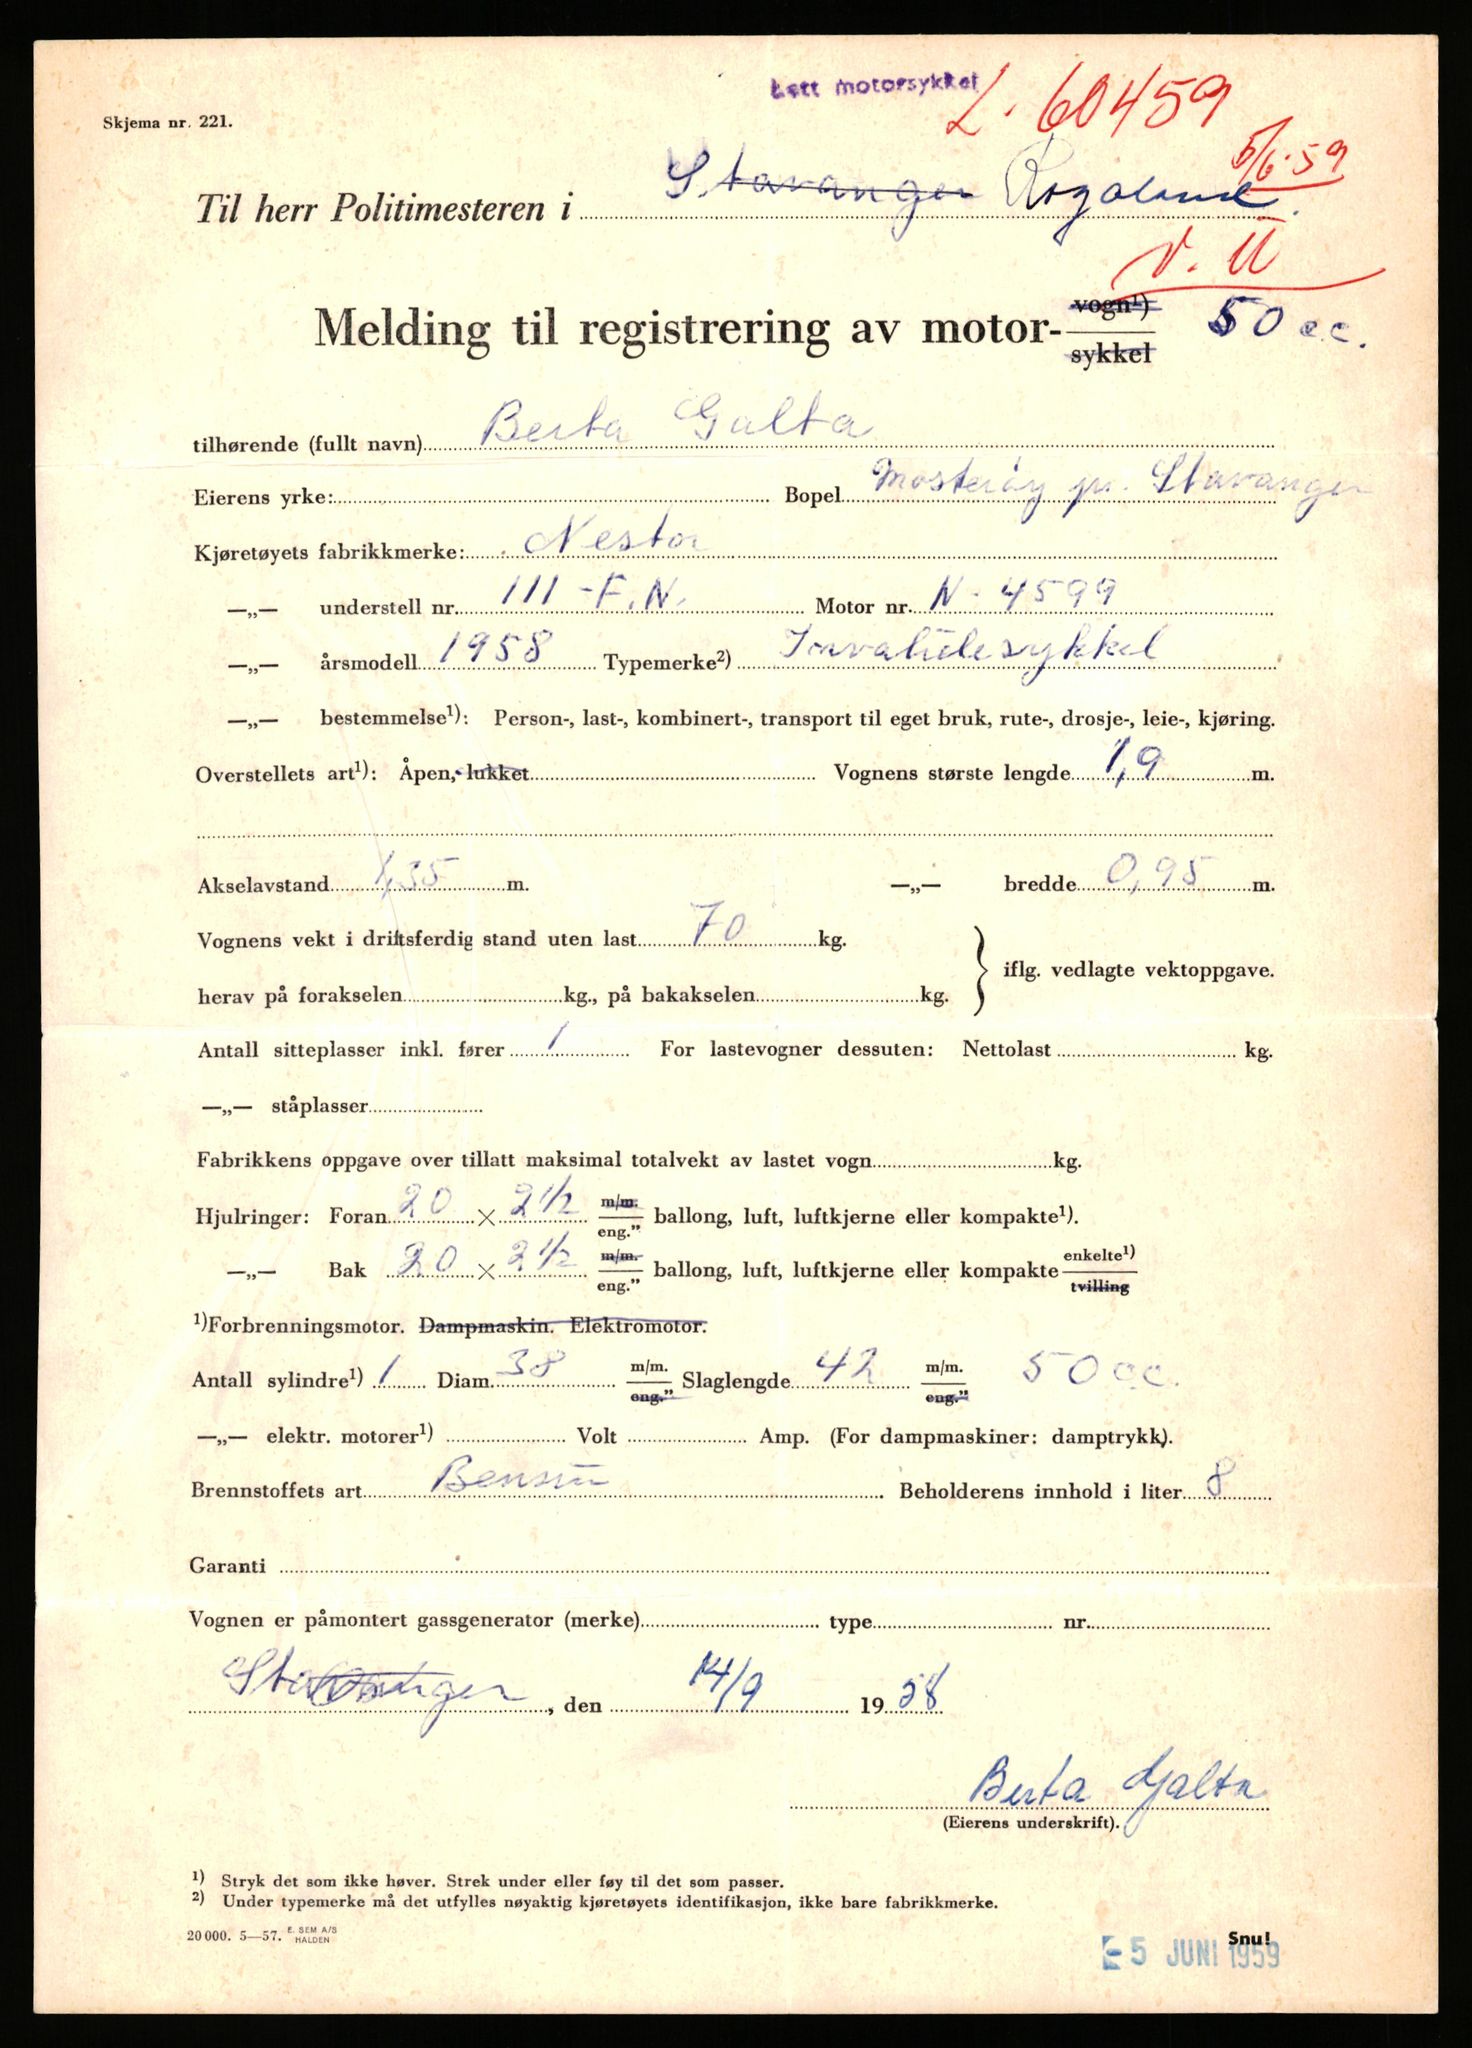 Lett motorsykkel
L. 60459
Skjema nr. 221.
5/6-59
Til herr Politimesteren i Stavanger Rogaland.
V. U
Melding til registrering av motor- vogn¹) / sykkel 50 c.c.
tilhørende (fullt navn) Berta Galta
Eierens yrke: Bopel Mosterøy pr. Stavanger
Kjøretøyets fabrikkmerke: Nestor
—„— understell nr. 111-F.N. Motor nr. N-4599
—„— årsmodell 1958 Typemerke²) Invalidesykkel
—„— bestemmelse¹): Person-, last-, kombinert-, transport til eget bruk, rute-, drosje-, leie-, kjøring.
Overstellets art¹): Åpen, lukket Vognens største lengde 1,9 m.
Akselavstand 1,35 m. —„— bredde 0,95 m.
Vognens vekt i driftsferdig stand uten last 70 kg.
iflg. vedlagte vektoppgave.
herav på forakselen kg., på bakakselen kg.
Antall sitteplasser inkl. fører 1 For lastevogner dessuten: Nettolast kg.
—„— ståplasser
Fabrikkens oppgave over tillatt maksimal totalvekt av lastet vogn kg.
Hjulringer: Foran 20 × 2½ m/m. / eng.” ballong, luft, luftkjerne eller kompakte¹).
—„— Bak 20 × 2½ m/m. / eng.” ballong, luft, luftkjerne eller kompakte enkelte¹) / tvilling
¹)Forbrenningsmotor. Dampmaskin. Elektromotor.
Antall sylindre¹) 1 Diam. 38 m/m. / eng.” Slaglengde 42 m/m. / eng.” 50 cc.
—„— elektr. motorer¹) Volt Amp. (For dampmaskiner: damptrykk).
Brennstoffets art Bensin Beholderens innhold i liter 8
Garanti
Vognen er påmontert gassgenerator (merke) type nr.
Stavanger, den 14/9 1958
Berta Galta
(Eierens underskrift).
¹) Stryk det som ikke høver. Strek under eller føy til det som passer.
²) Under typemerke må det utfylles nøyaktig kjøretøyets identifikasjon, ikke bare fabrikkmerke.
20 000. 5—57. E. SEM A/S HALDEN
Snu!
- 5 JUNI 1959